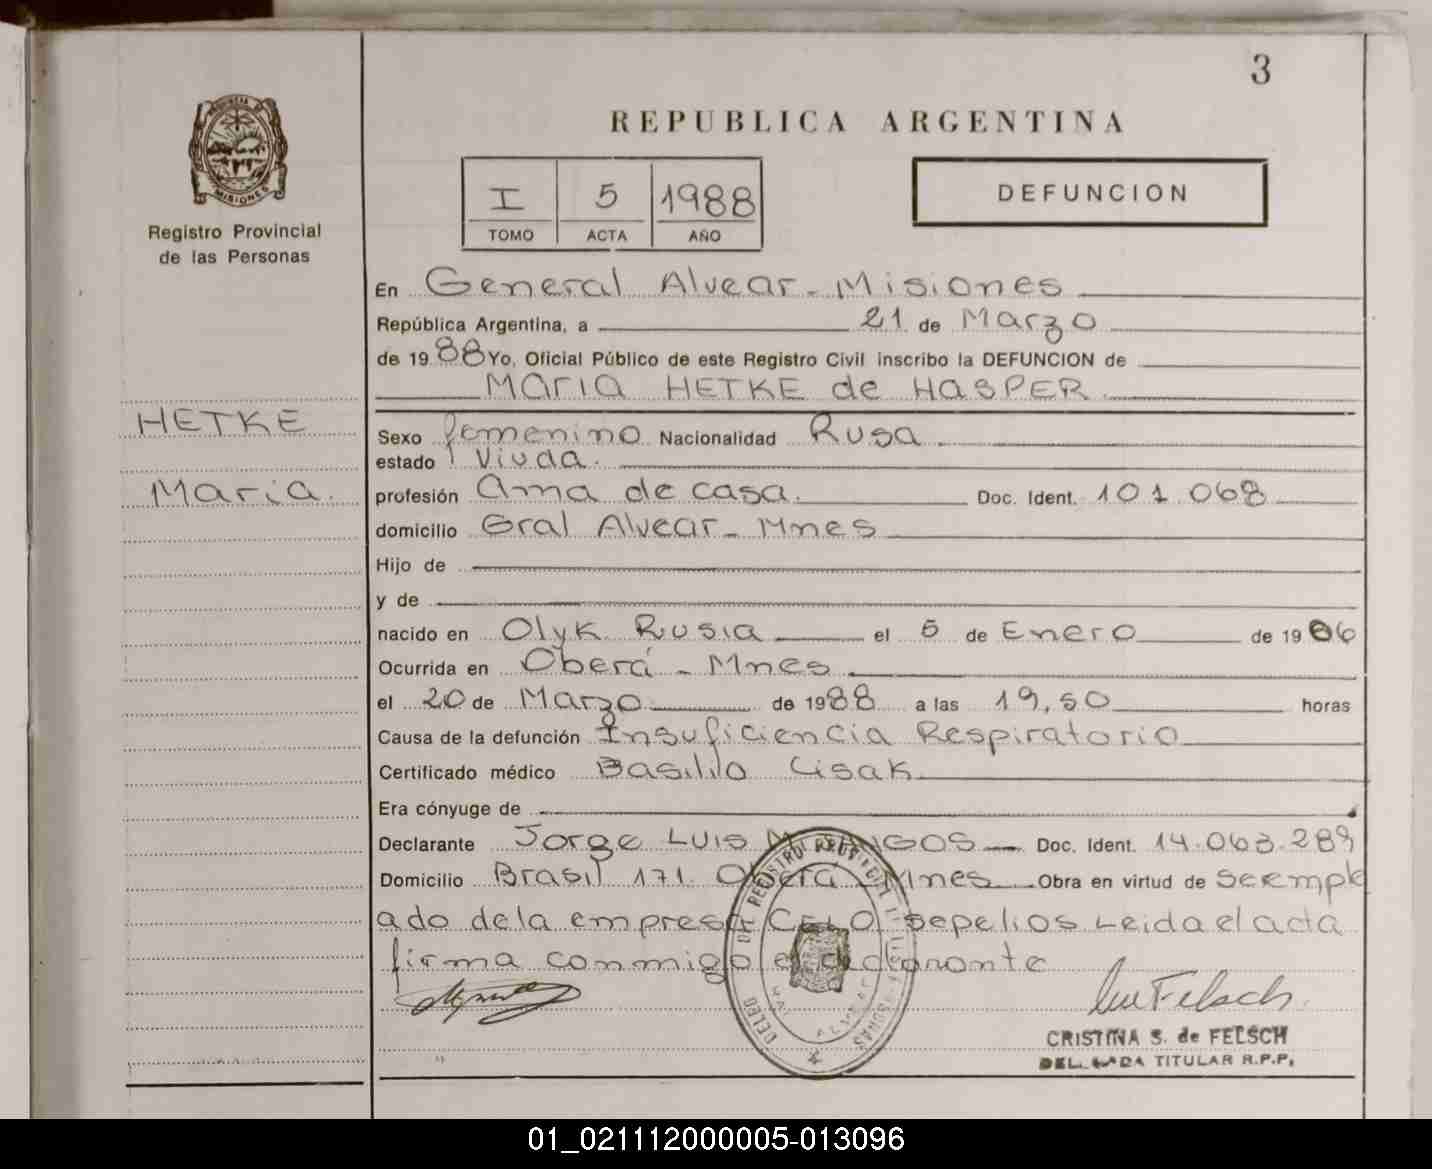 3
REPUBLICA ARGENTINA
PROVINCIA DE
MISIONES
Registro Provincial
de las Personas
I 5 1988
TOMO ACTA AÑO
DEFUNCION
En General Alvear - Misiones
República Argentina, a 21 de Marzo
de 19 88 Yo, Oficial Público de este Registro Civil inscribo la DEFUNCION de
Maria HETKE de HASPER
HETKE
Maria.
Sexo femenino Nacionalidad Rusa
estado Viuda.
profesión Ama de casa. Doc. Ident. 101.068
domicilio Gral Alvear - Mnes
Hijo de
y de
nacido en Olyk Rusia el 5 de Enero de 19 06
Ocurrida en Oberá - Mnes
el 20 de Marzo de 19 88 a las 19,50 horas
Causa de la defunción Insuficiencia Respiratorio
Certificado médico Basilio Cisak
Era cónyuge de
Declarante Jorge Luis Doc. Ident. 14.063.289
Domicilio Brasil 171 Oberá - Mnes Obra en virtud de ser empl
ado de la empresa CELO sepelios Leida el acta
firma conmigo el declarante
CRISTINA S. de FELSCH
DELEGADA TITULAR R.P.P.
01_021112000005-013096